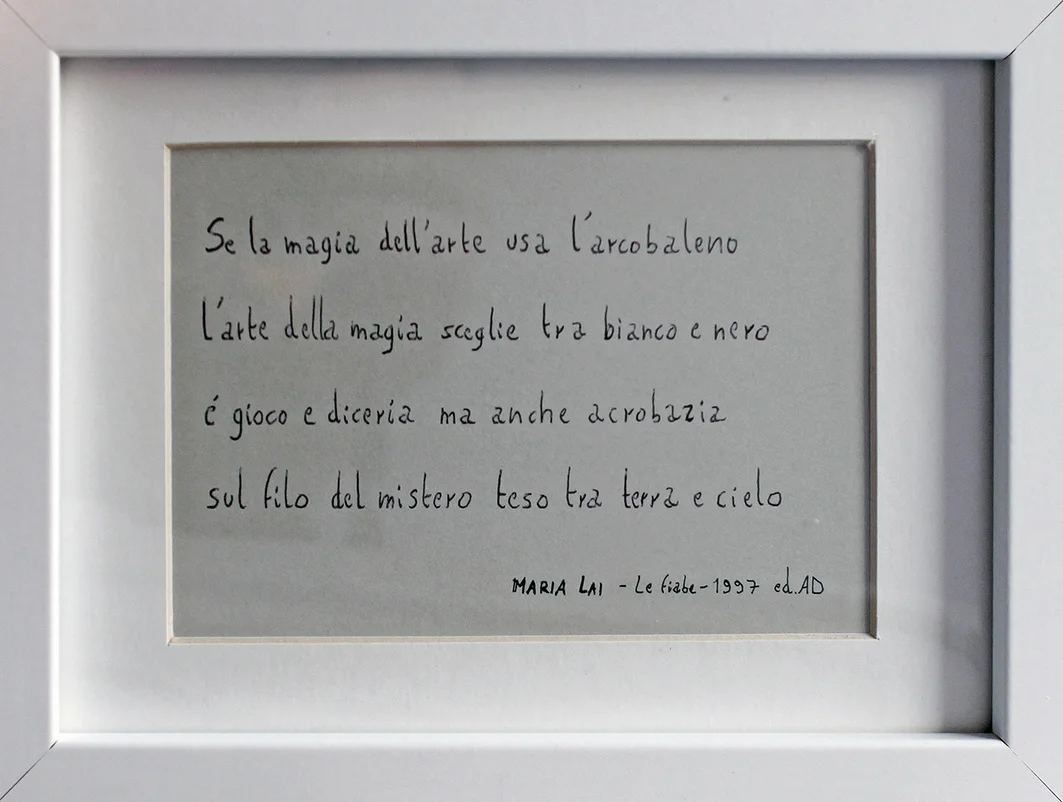 Se la magia dell'arte usa l'arcobaleno
l'arte della magia sceglie tra bianco e nero
é gioco e diceria ma anche acrobazia
sul filo del mistero teso tra terra e cielo
MARIA LAI - Le fiabe - 1997 ed. AD